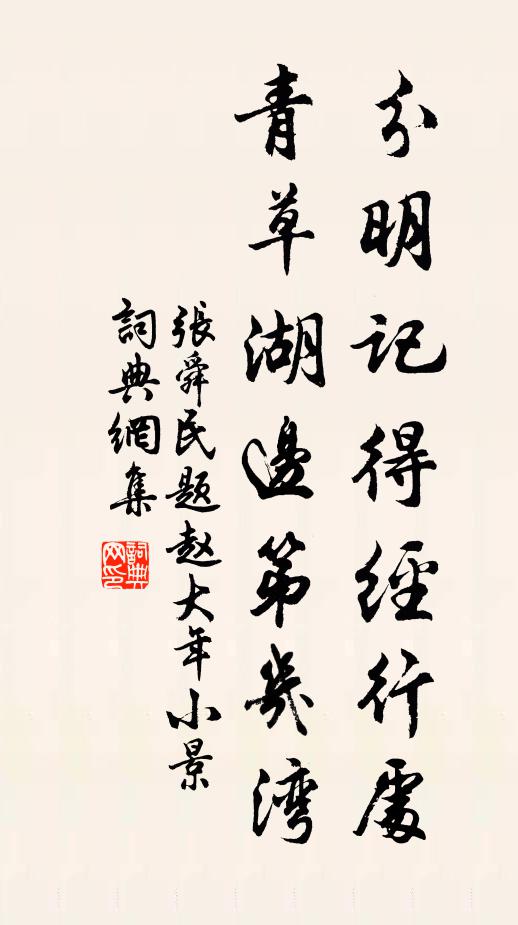 分明记得经行处
青草湖边第几湾
張舜民题赵大年小景
詞典網集
詞典网印